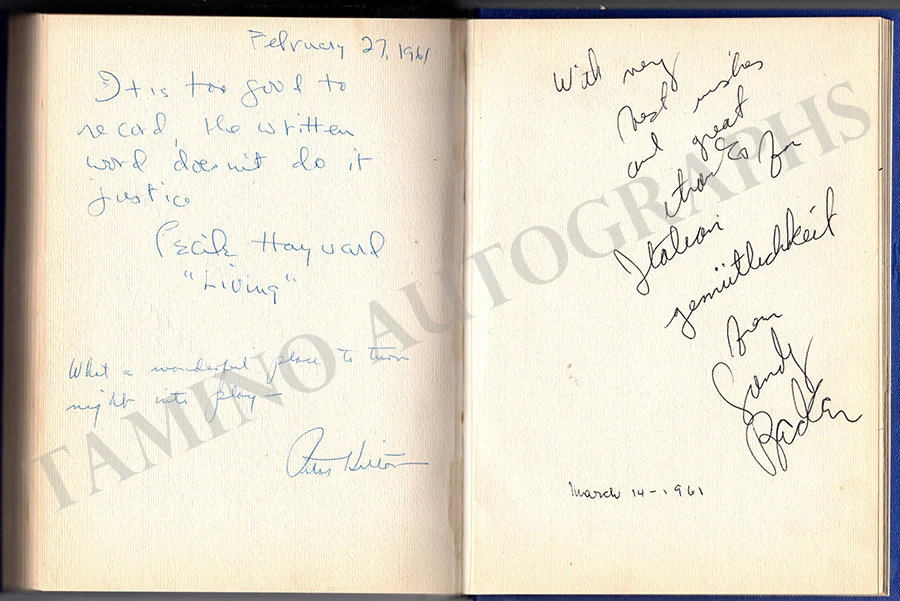 February 27, 1961
It is too good to
record, the written
word doesn't do it
justice
Cecile Hayward
"Living"
What a wonderful place to turn
night into play—
Hilton
With very
best wishes
and great
thanks for
Italian
gemütlichkeit
from
Sandy
March 14-1961
TAMINO AUTOGRAPHS